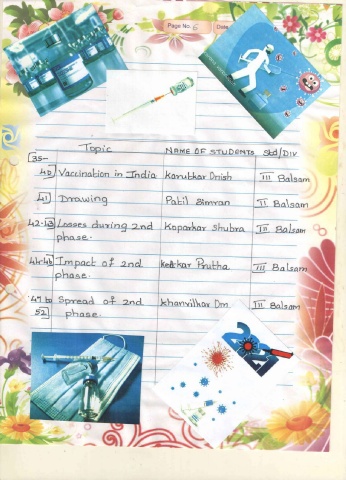 Page No. 5 Date
Topic NAME OF STUDENTS Std/Div.
35-
40 Vaccination in India Karulkar Onish III Balsam
41 Drawing Patil Simran II Balsam
42-43 Losses during 2nd phase. Koparkar Shubra III Balsam
44-46 Impact of 2nd phase. Kelkar Prutha III Balsam
47 to 52 Spread of 2nd phase. Khanvilkar Om. III Balsam